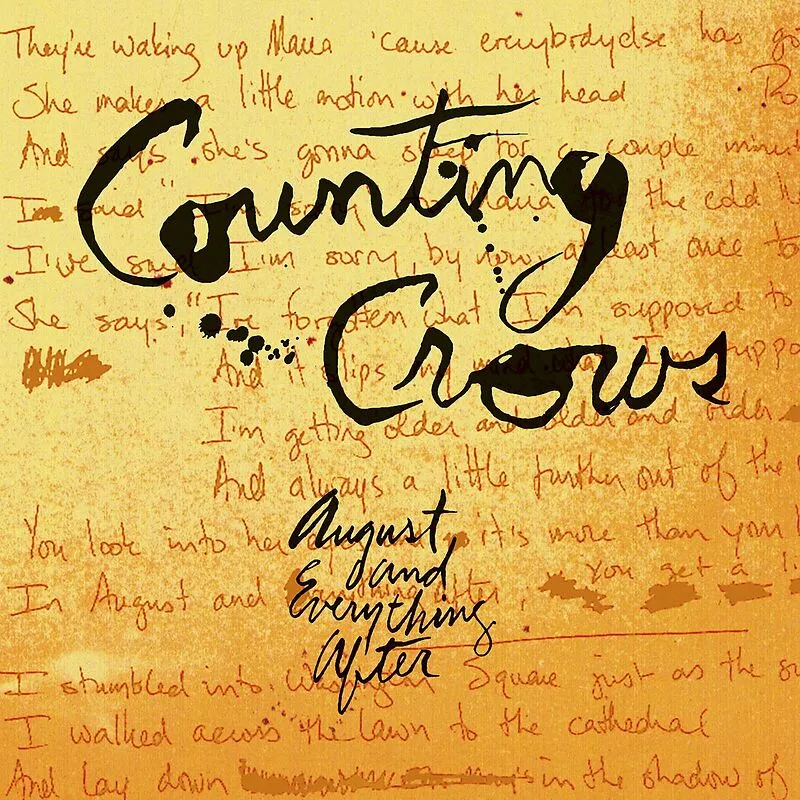 They're waking up Maria 'cause everybodyelse has go
She makes a little motion with her head
And says she's gonna sleep for a couple minut
I'm said "I'm sorry Maria for the cold
I've said I'm sorry, by now, at least once to
She says, "I've forgotten what I'm supposed to
And it slips my mind what I'm suppo
I'm getting older and older and older
And always a little further out of the
You look into her it's more than your
In August and Everything After, You get a li
I stumbled into Washington Square just as the su
I walked across the lawn to the cathedral
And lay down in the shadow of
Counting
Crows
August
and
Everything
After